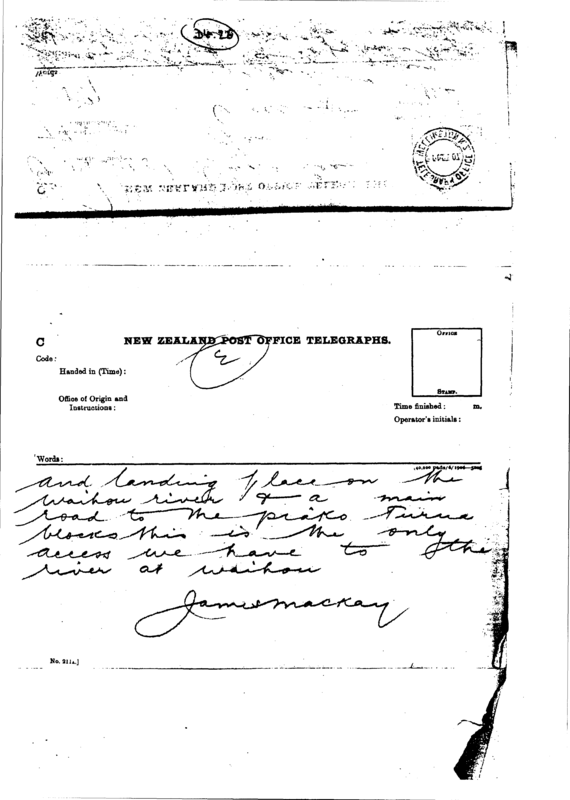 D4.28
NEW ZEALAND POST OFFICE TELEGRAPHS.
C
NEW ZEALAND POST OFFICE TELEGRAPHS.
2
Code:
Handed in (Time):
Office of Origin and
Instructions:
Office
Stamp.
Time finished: m.
Operator's initials:
Words:
and landing place on the
waihou river & a main
road to the piako Turua
blocks this is the only
access we have to the
river at waihou
James Mackay
No. 211A.]